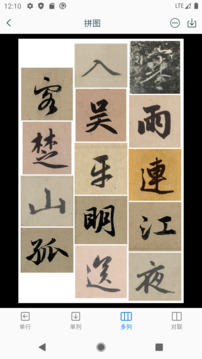 12:10
LTE
拼图
寒雨連江夜
入吳
平明送
客楚山孤
单行
单列
多列
对联